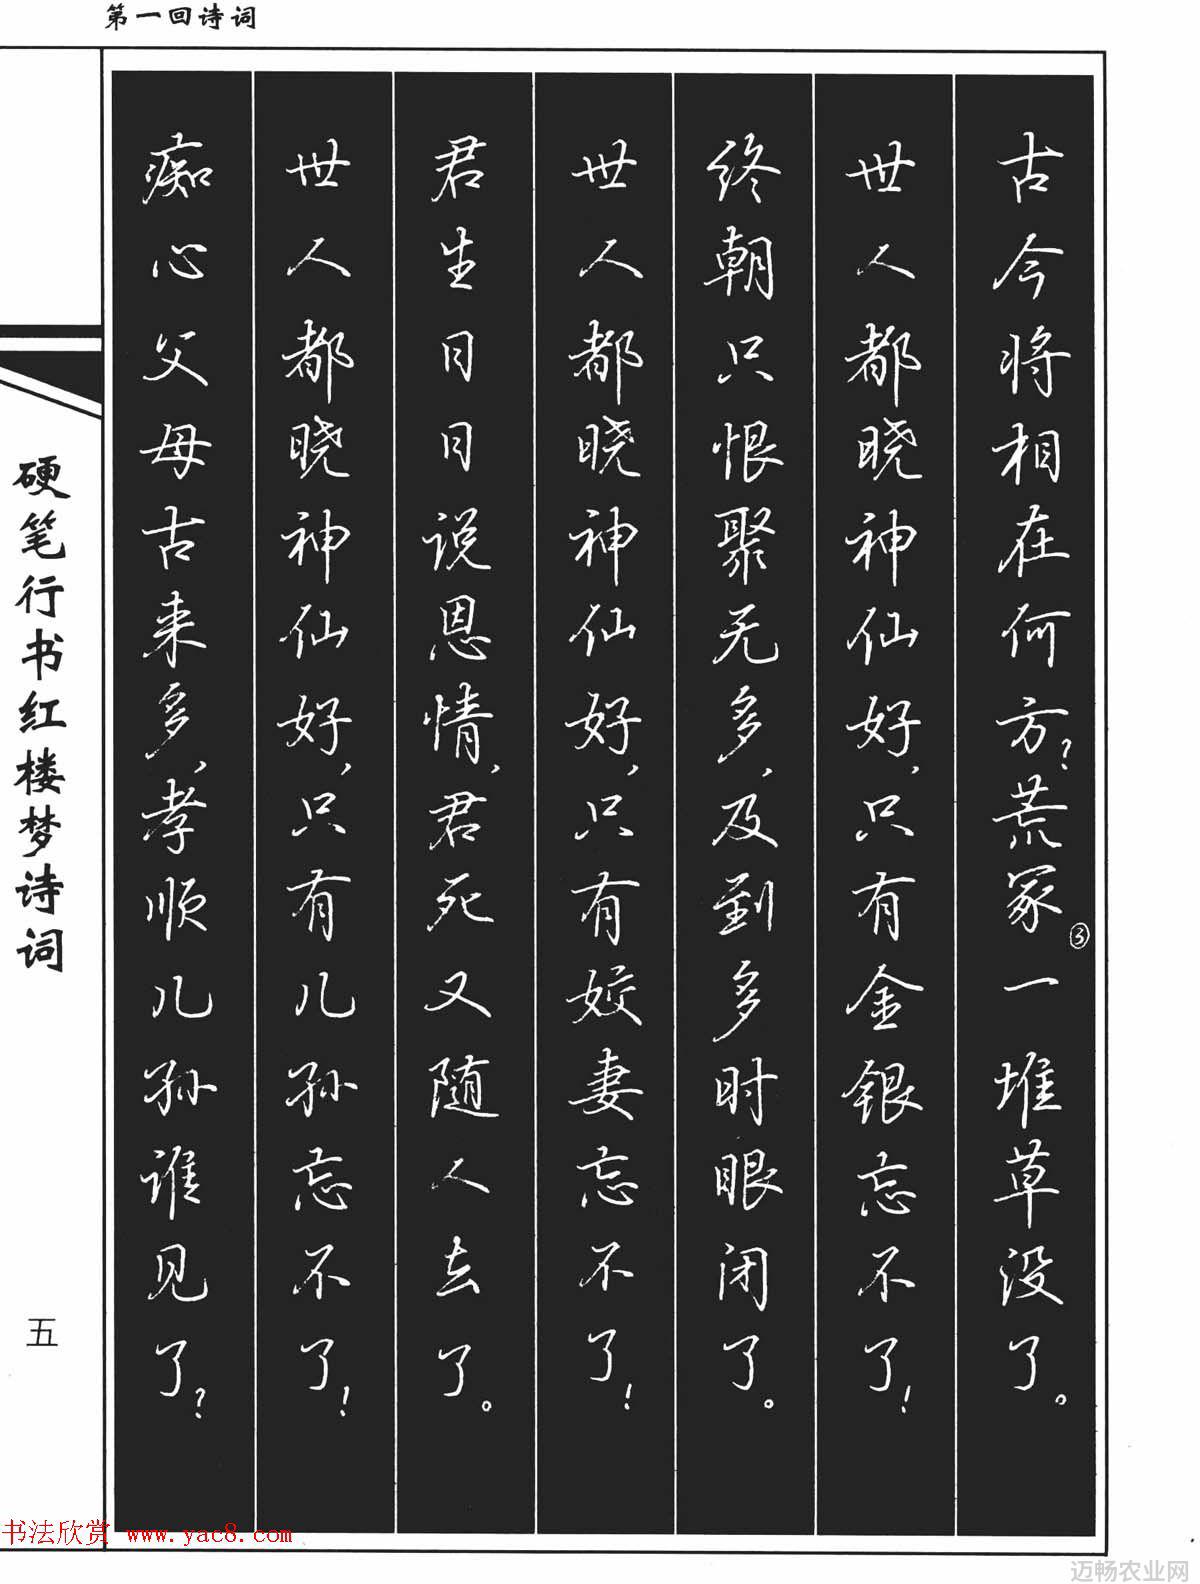 第一回诗词
古今将相在何方?荒冢③一堆草没了。
世人都晓神仙好,只有金银忘不了!
终朝只恨聚无多,及到多时眼闭了。
世人都晓神仙好,只有姣妻忘不了!
君生日日说恩情,君死又随人去了。
世人都晓神仙好,只有儿孙忘不了!
痴心父母古来多,孝顺儿孙谁见了?
硬笔行书红楼梦诗词
五
书法欣赏 www.yac8.com
迈畅农业网